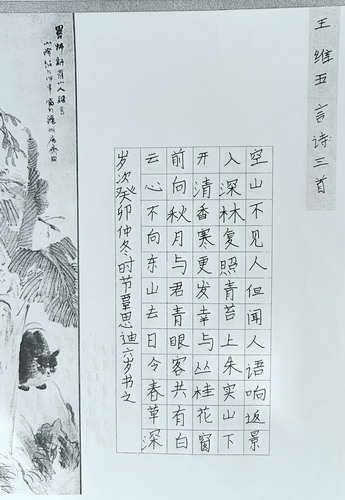 王维五言诗三首
空山不见人但闻人语响返景
入深林复照青苔上朱实山下
开清香寒更发幸与丛桂花窗
前向秋月与君青眼客共有白
云心不向东山去日令春草深
岁次癸卯仲冬时节覃思迪六岁书之